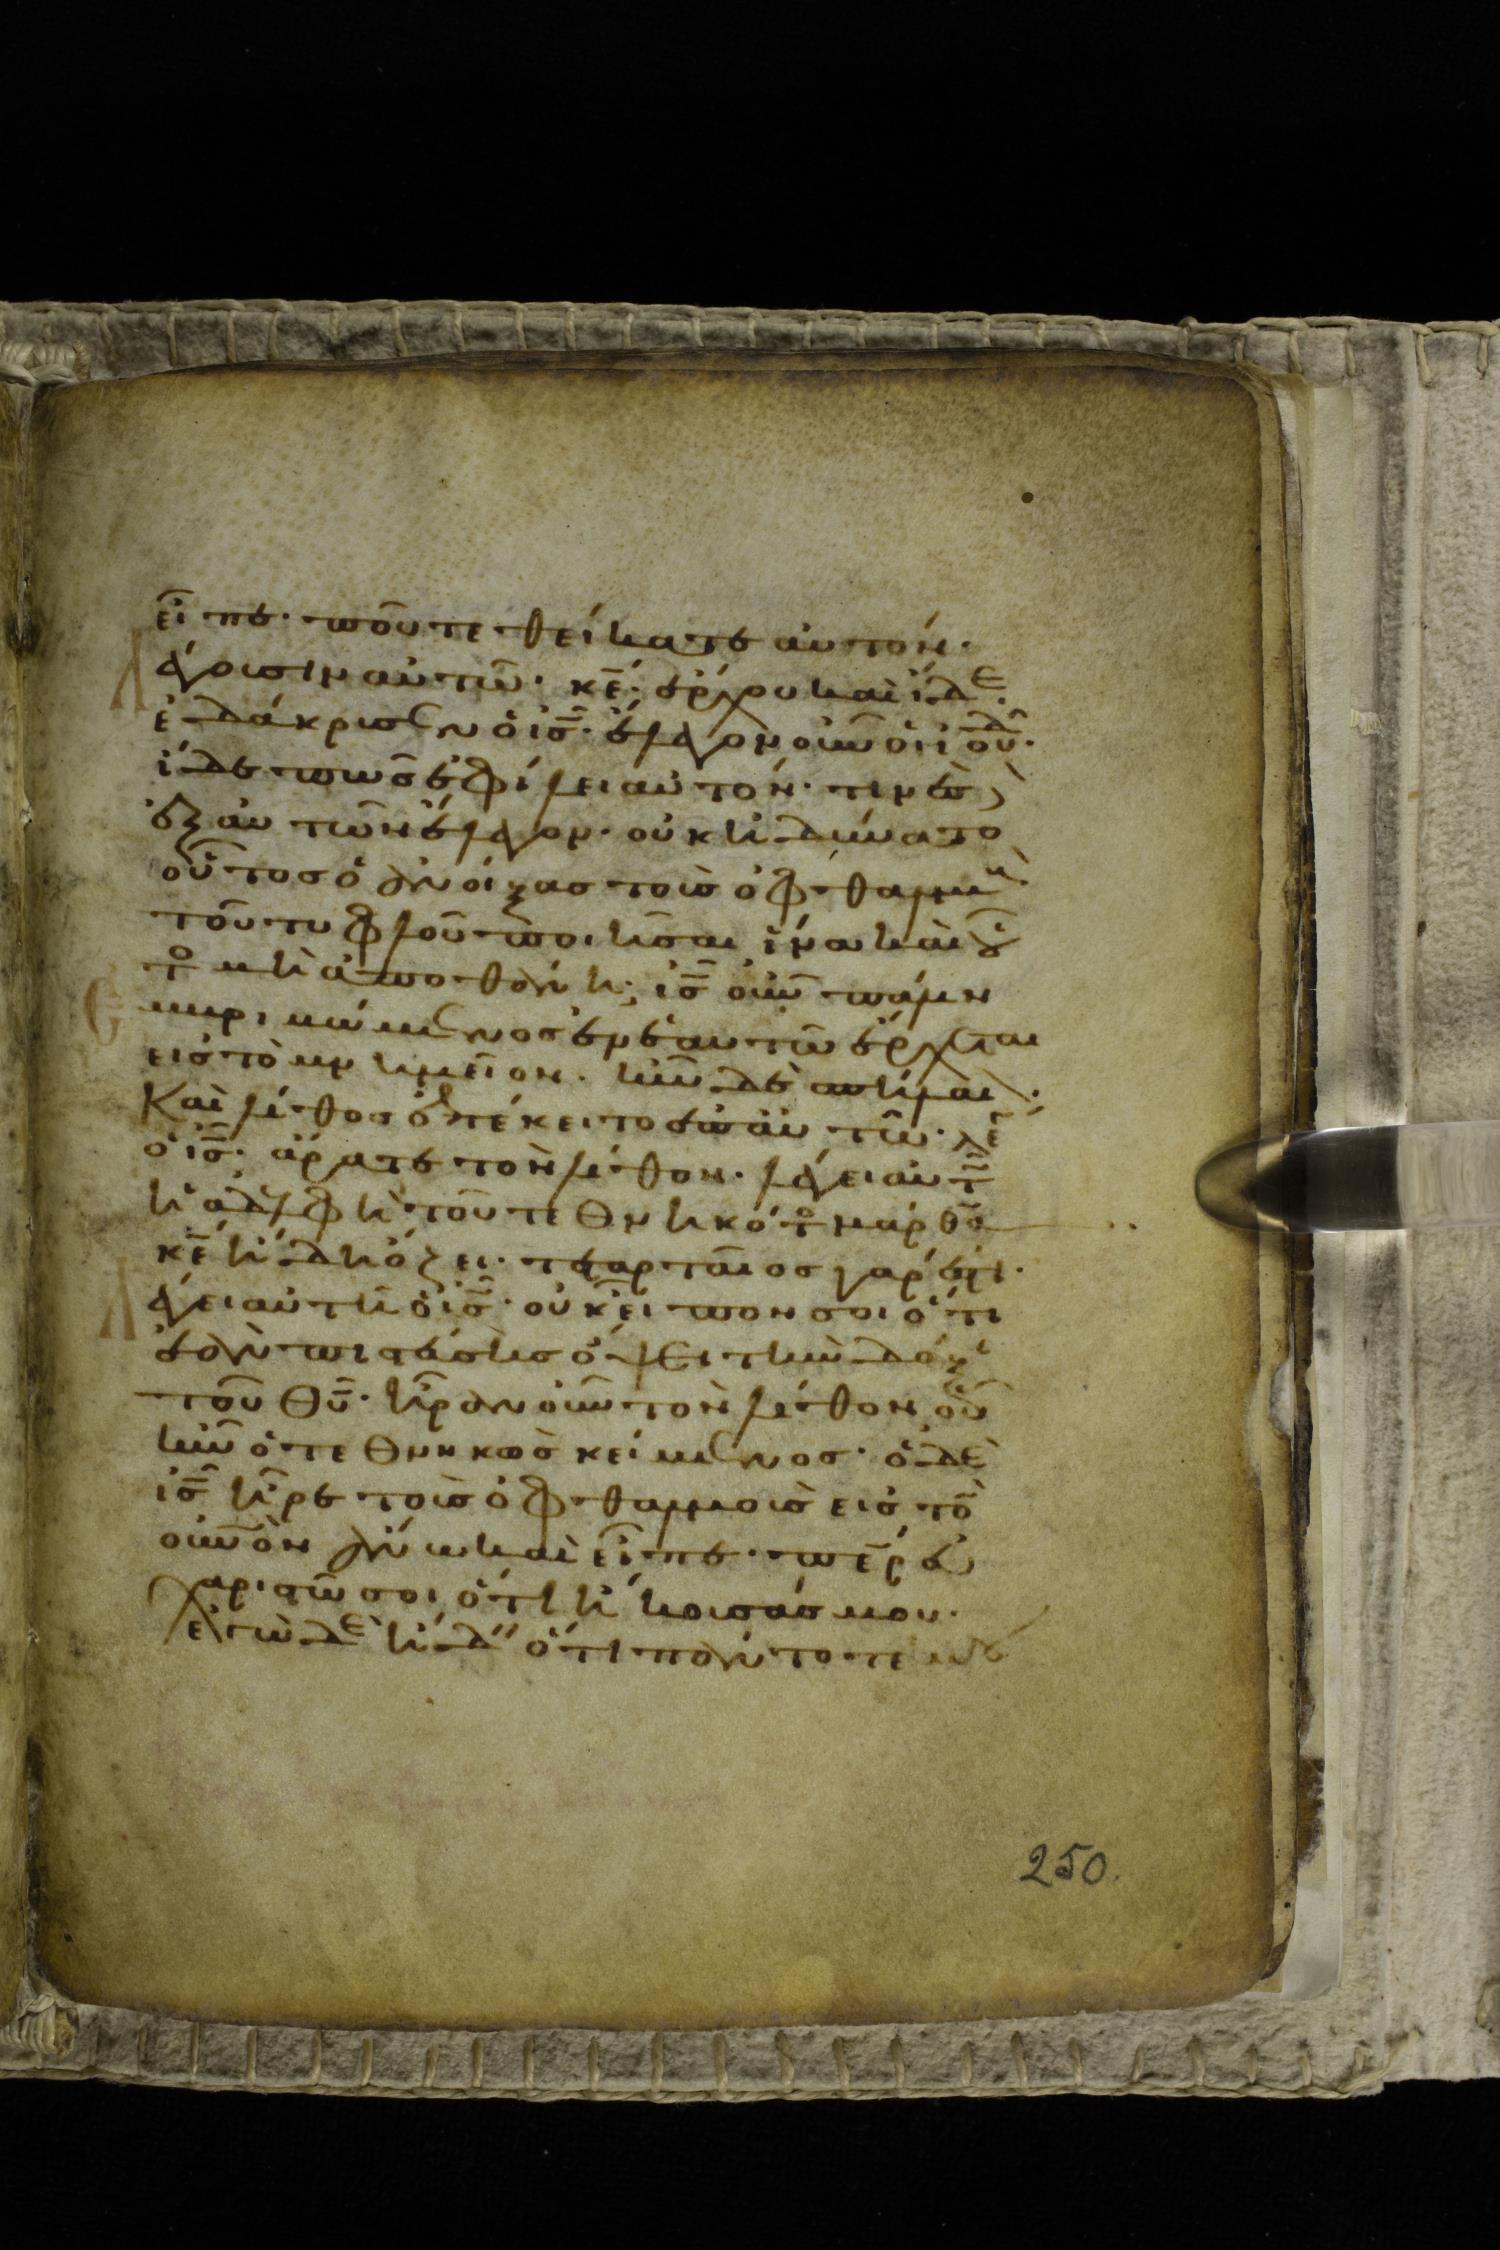 εἶπε· ποῦ τεθείκατε αὐτόν·
Λέγουσιν αὐτῶ· κε̅· ἔρχου καὶ ἴδε·
ἐδάκρυσεν ὁ ις̅· ἔλεγον οὖν οἱ ἰουδ
ἴδε πῶς ἐφίλει αὐτόν· τινὲς δὲ
ἐξ αὐτῶν ἔλεγον· οὐκ ἠδύνατο
οὗτος ὁ ἀνοίξας τοὺς ὀφθαλμοὺ
τοῦ τυφλοῦ ποιῆσαι ἵνα καὶ οὗ
τος μὴ ἀποθάνη· ις̅ οὖν πάλιν
Ἐμβριμώμενος ἐν ἑαυτῶ ἔρχεται
εἰς τὸ μνημεῖον· ἦν δὲ σπήλαι
Καὶ λίθος ἐπέκειτο ἐπ' αὐτῶ· λέγ
ὁ ις̅· ἄρατε τὸν λίθον· λέγει αὐτ
ἡ ἀδελφὴ τοῦ τεθνηκότος μάρθα
κε̅ ἤδη ὄζει· τεταρταῖος γάρ ἐστι·
Λέγει αὐτῆ ὁ ις̅· οὐκ εἶπον σοι ὅτι
ἐὰν πιστεύσης ὄψει τὴν δόξ
τοῦ θυ̅· ἦραν οὖν τὸν λίθον οὗ
ἦν ὁ τεθνηκὼς κείμενος· ὁ δὲ
ις̅ ἦρε τοὺς ὀφθαλμοὺς εἰς τὸ
οὐνὸν ἄνω καὶ εἶπε· πε̅ρ εὐ
χαριστῶ σοι ὅτι ἤκουσάς μου·
ἐγὼ δὲ ἤδειν ὅτι πάντοτε μου
250.